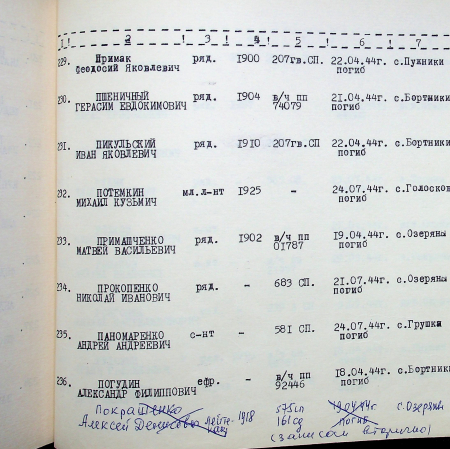 1! 2 ! 3 ! 4 ! 5 ! 6 ! 7
229. Примак ряд. 1900 207гв.СП. 22.04.44г. с.Пужники
Феодосий Яковлевич погиб
230. ПШЕНИЧНЫЙ ряд. 1904 в/ч пп 21.04.44г. с.Бортники
ГЕРАСИМ ЕВДОКИМОВИЧ 74079 погиб
231. ПИКУЛЬСКИЙ ряд. 1910 207гв.СП 22.04.44г. с.Бортники
ИВАН ЯКОВЛЕВИЧ погиб
232. ПОТЕМКИН мл.л-нт 1925 - 24.07.44г. с.Голосков
МИХАИЛ КУЗЬМИЧ погиб
233. ПРИМАШЧЕНКО ряд. 1902 в/ч пп 19.04.44г. с.Озеряны
МАТВЕЙ ВАСИЛЬЕВИЧ 01787 погиб
234. ПРОКОПЕНКО ряд. - 683 СП. 21.07.44г. с.Озеряны
НИКОЛАЙ ИВАНОВИЧ погиб
235. ПАНОМАРЕНКО с-нт - 581 СП. 24.07.44г. с.Грушки
АНДРЕЙ АНДРЕЕВИЧ погиб
236. ПОГУДИН ефр. - в/ч пп 18.04.44г. с.Бортники
АЛЕКСАНДР ФИЛИППОВИЧ 92446 погиб
Покрашенко 575сп 19.04.44г. с.Озеряны
Алексей Денисович лейте- 1918 161сд погиб
нант (записан вторично)